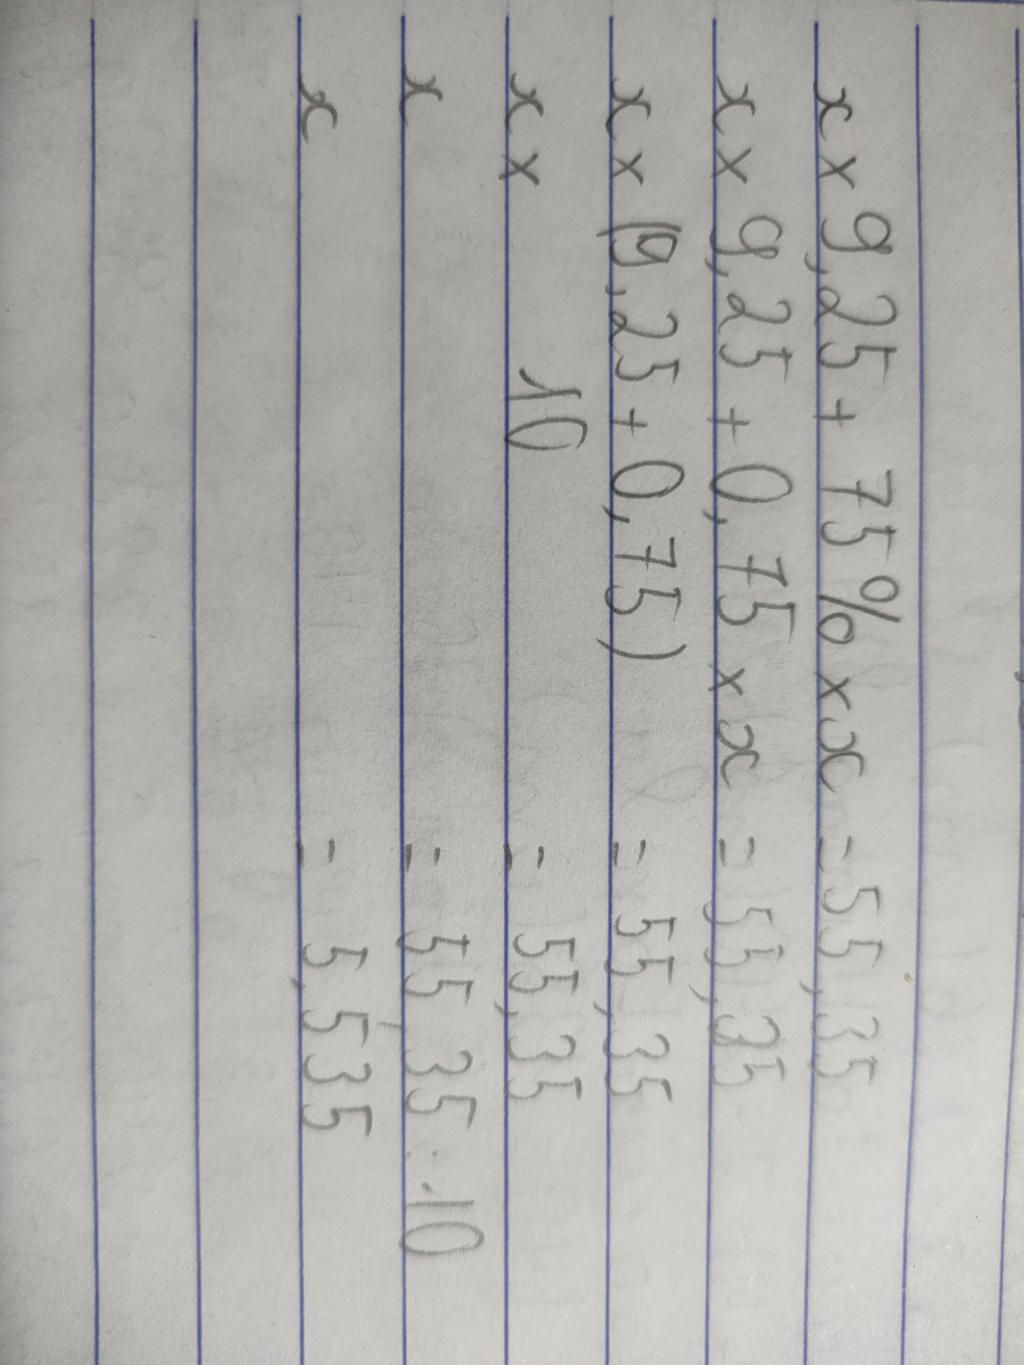 x × 9,25 + 75% × x = 55,35
x × 9,25 + 0,75 × x = 55,35
x × (9,25 + 0,75) = 55,35
x × 10 = 55,35
x = 55,35 : 10
x = 5,535